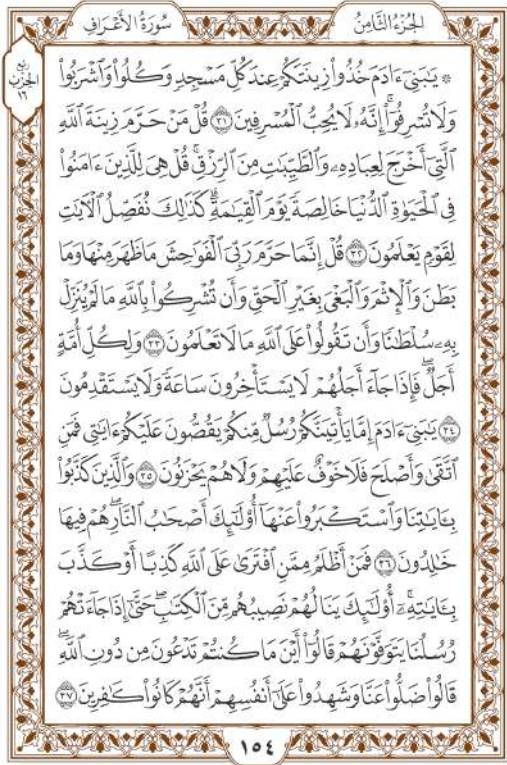 الجُزْءُ الثَّامِنُ
سُورَةُ الأَعْرَافِ
رُبع
الحِزْب
١٦
۞ يَٰبَنِيٓ ءَادَمَ خُذُواْ زِينَتَكُمْ عِندَ كُلِّ مَسْجِدٍ وَكُلُواْ وَٱشْرَبُواْ
وَلَا تُسْرِفُوٓاْۚ إِنَّهُۥ لَا يُحِبُّ ٱلْمُسْرِفِينَ ٣١ قُلْ مَنْ حَرَّمَ زِينَةَ ٱللَّهِ
ٱلَّتِيٓ أَخْرَجَ لِعِبَادِهِۦ وَٱلطَّيِّبَٰتِ مِنَ ٱلرِّزْقِۚ قُلْ هِيَ لِلَّذِينَ ءَامَنُواْ
فِي ٱلْحَيَوٰةِ ٱلدُّنْيَا خَالِصَةً يَوْمَ ٱلْقِيَٰمَةِۗ كَذَٰلِكَ نُفَصِّلُ ٱلْأٓيَٰتِ
لِقَوْمٍ يَعْلَمُونَ ٣٢ قُلْ إِنَّمَا حَرَّمَ رَبِّيَ ٱلْفَوَٰحِشَ مَا ظَهَرَ مِنْهَا وَمَا
بَطَنَ وَٱلْإِثْمَ وَٱلْبَغْيَ بِغَيْرِ ٱلْحَقِّ وَأَن تُشْرِكُواْ بِٱللَّهِ مَا لَمْ يُنَزِّلْ
بِهِۦ سُلْطَٰنًا وَأَن تَقُولُواْ عَلَى ٱللَّهِ مَا لَا تَعْلَمُونَ ٣٣ وَلِكُلِّ أُمَّةٍ
أَجَلٌۖ فَإِذَا جَآءَ أَجَلُهُمْ لَا يَسْتَأْخِرُونَ سَاعَةً وَلَا يَسْتَقْدِمُونَ
٣٤ يَٰبَنِيٓ ءَادَمَ إِمَّا يَأْتِيَنَّكُمْ رُسُلٌ مِّنكُمْ يَقُصُّونَ عَلَيْكُمْ ءَايَٰتِي فَمَنِ
ٱتَّقَىٰ وَأَصْلَحَ فَلَا خَوْفٌ عَلَيْهِمْ وَلَا هُمْ يَحْزَنُونَ ٣٥ وَٱلَّذِينَ كَذَّبُواْ
بِـَٔايَٰتِنَا وَٱسْتَكْبَرُواْ عَنْهَآ أُوْلَٰٓئِكَ أَصْحَٰبُ ٱلنَّارِۖ هُمْ فِيهَا
خَٰلِدُونَ ٣٦ فَمَنْ أَظْلَمُ مِمَّنِ ٱفْتَرَىٰ عَلَى ٱللَّهِ كَذِبًا أَوْ كَذَّبَ
بِـَٔايَٰتِهِۦٓۚ أُوْلَٰٓئِكَ يَنَالُهُمْ نَصِيبُهُم مِّنَ ٱلْكِتَٰبِۖ حَتَّىٰٓ إِذَا جَآءَتْهُمْ
رُسُلُنَا يَتَوَفَّوْنَهُمْ قَالُوٓاْ أَيْنَ مَا كُنتُمْ تَدْعُونَ مِن دُونِ ٱللَّهِۖ
قَالُواْ ضَلُّواْ عَنَّا وَشَهِدُواْ عَلَىٰٓ أَنفُسِهِمْ أَنَّهُمْ كَانُواْ كَٰفِرِينَ ٣٧
١٥٤